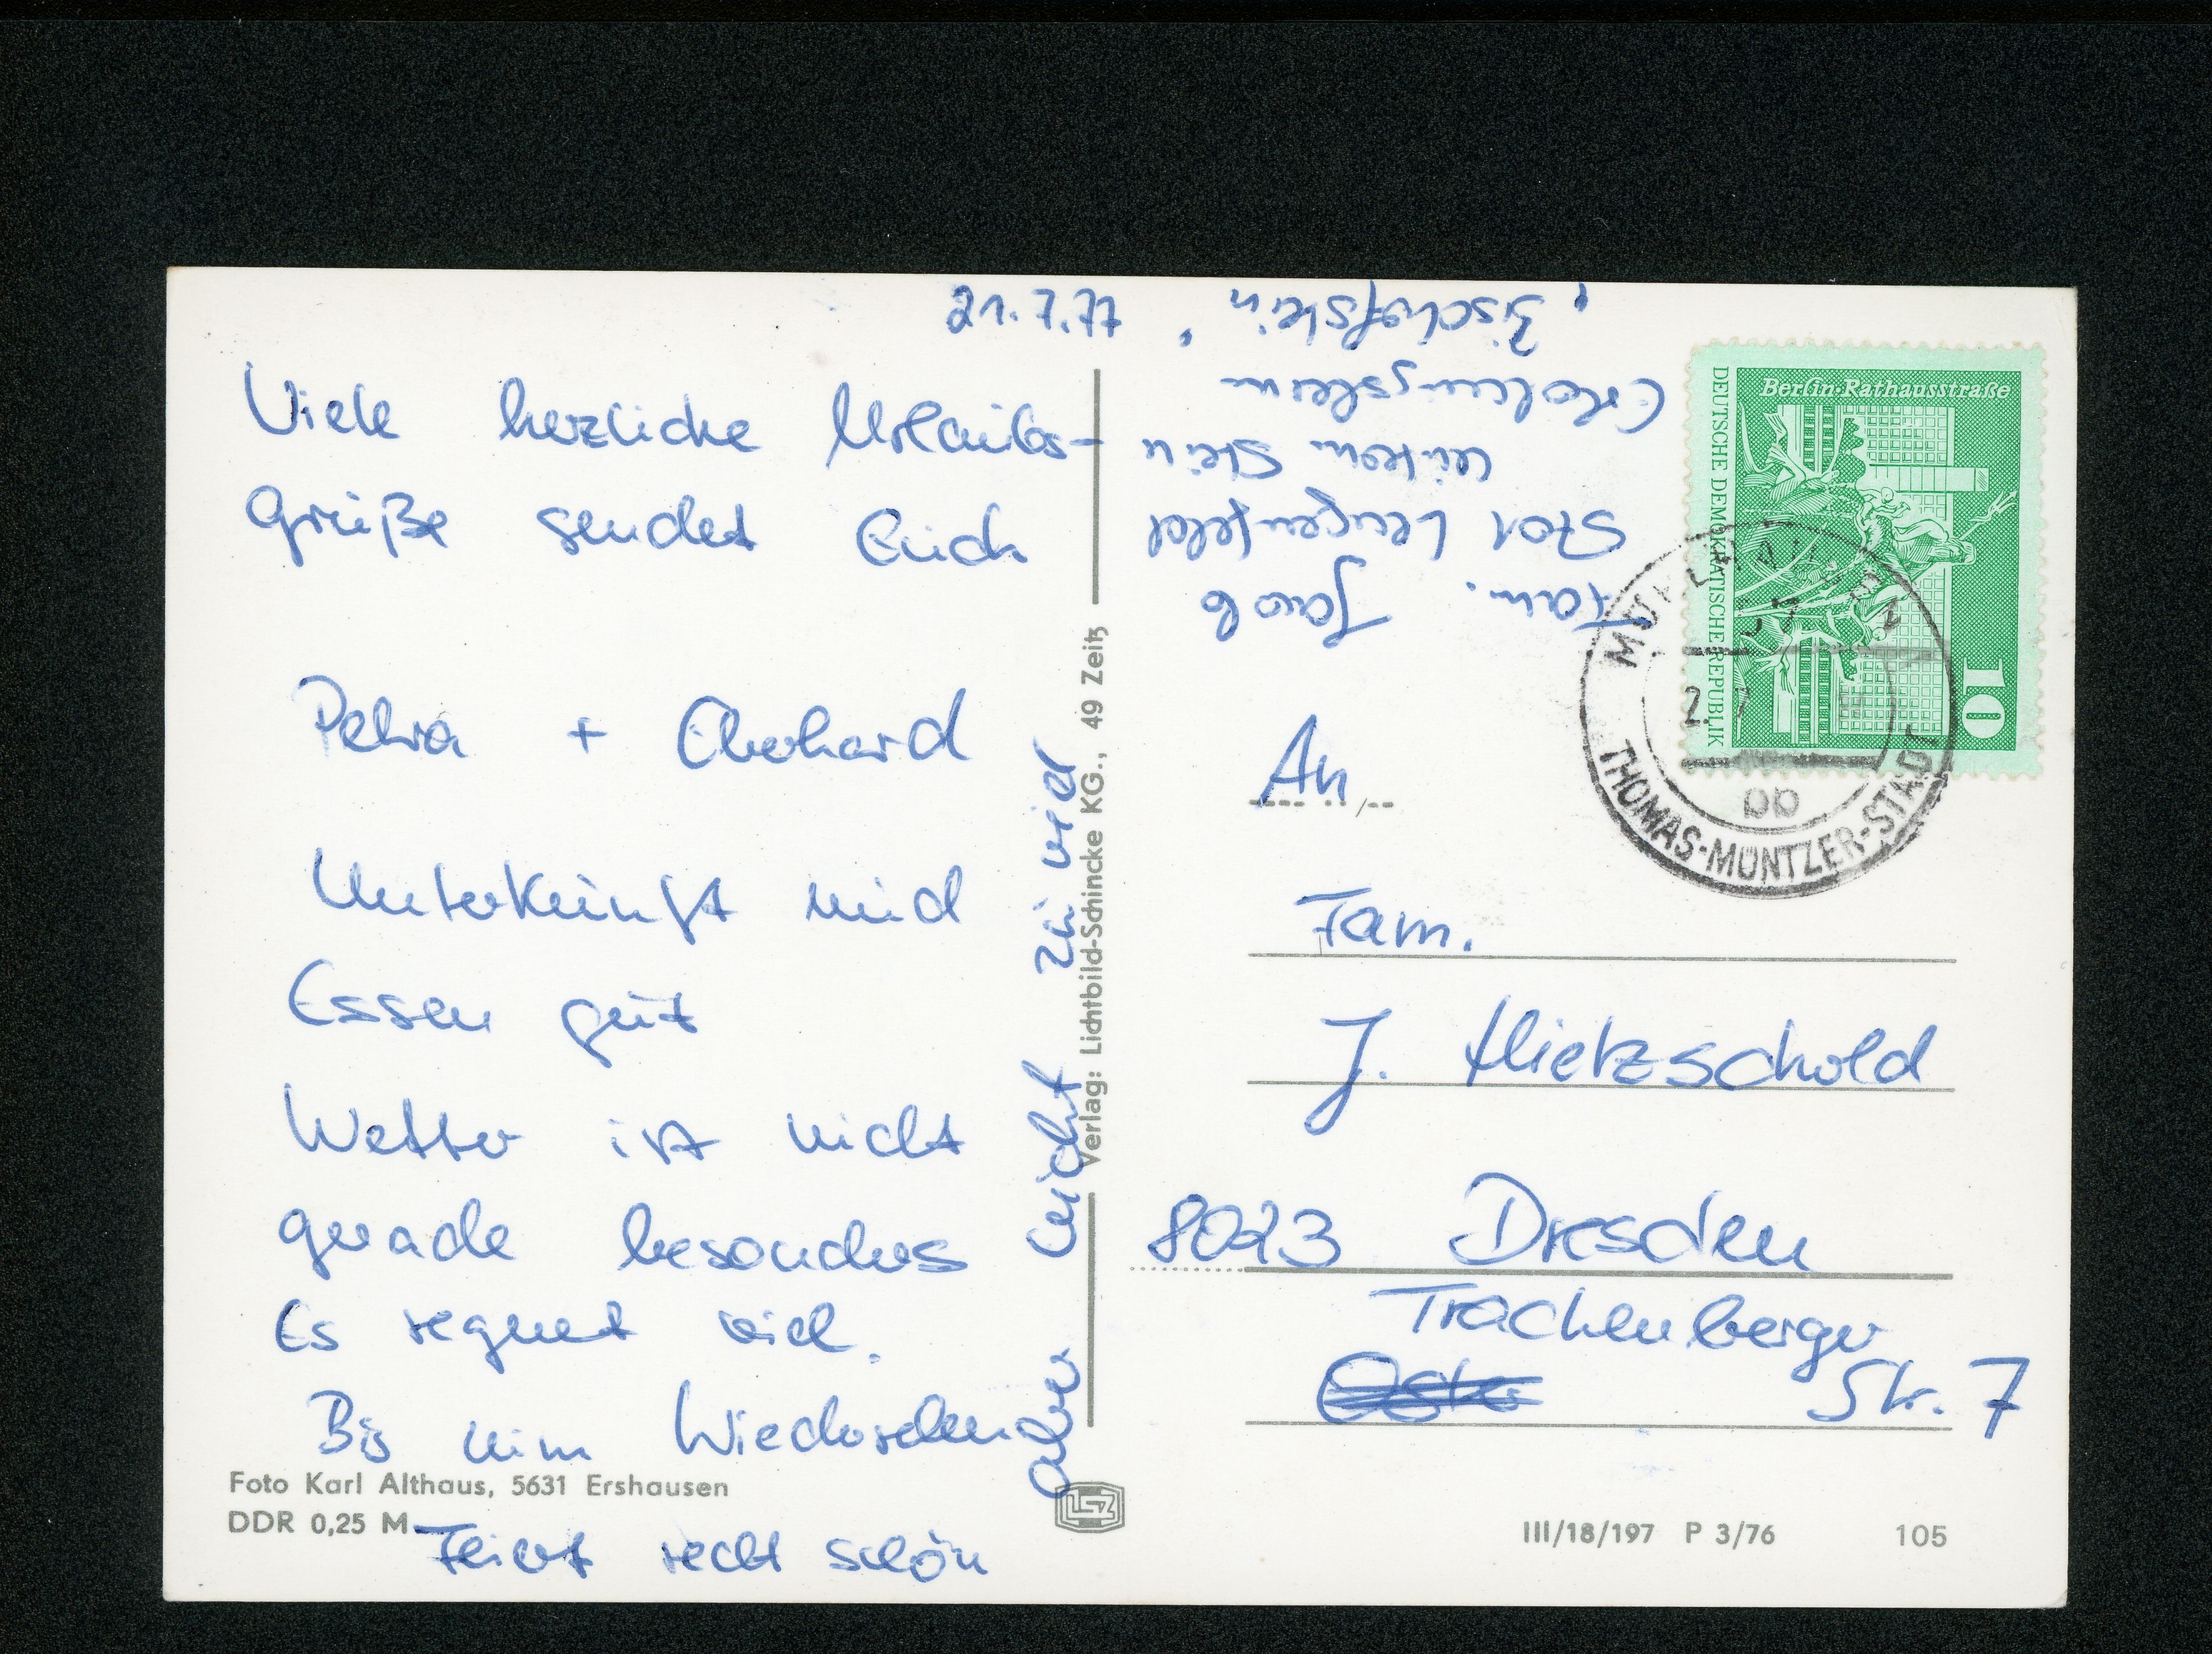 21.7.77
Viele herzliche Urlaubs-
grüße sendet Euch
Petra + Eberhard
Unterkunft und
Essen gut
Wetter ist nicht
gerade besonders
Es regnet viel.
Bis zum Wiedersehen
Feiert recht schön
aber nicht zu viel
Foto Karl Althaus, 5631 Ershausen
DDR 0,25 M
Verlag: Lichtbild-Schincke KG., 49 Zeitz
LSZ
Fam. Jacob
5701 Lengenfeld
unterm Stein
Erholungsheim
"Bischofstein"
Berlin·Rathausstraße
DEUTSCHE DEMOKRATISCHE REPUBLIK
10
MÜHLHAUSEN
57
THOMAS-MÜNTZER-STADT
An
Fam.
J. Mietzschold
8023 Dresden
Trachenberger
Str. 7
III/18/197 P 3/76 105